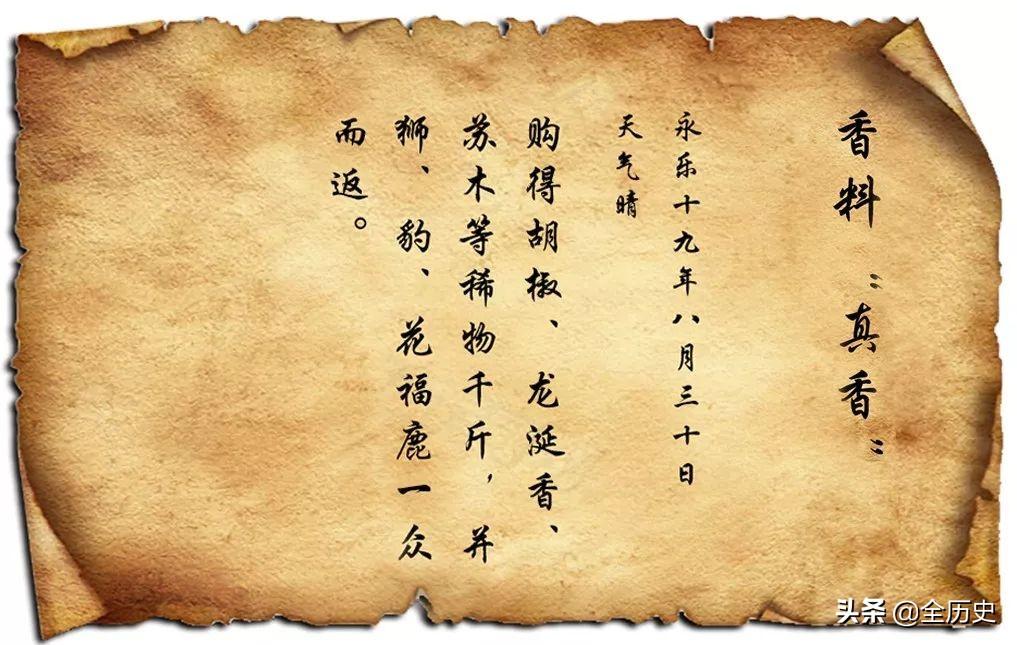 香料“真香”
永乐十九年八月三十日
天气晴
购得胡椒、龙涎香、
苏木等稀物千斤，并
狮、豹、花福鹿一众
而返。
头条 @全历史